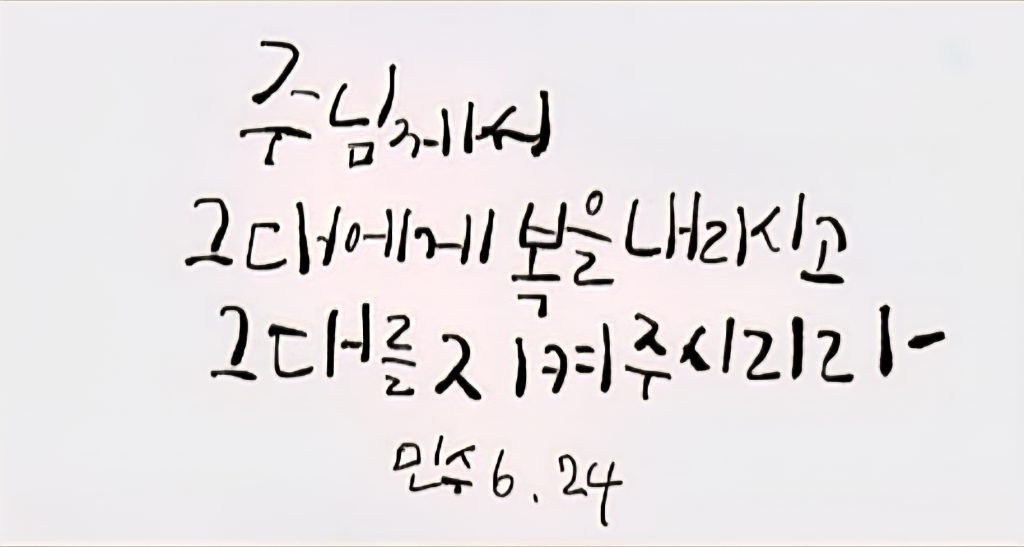 주님께서
그대에게 복을 내리시고
그대를 지켜주시리라
민수 6.24